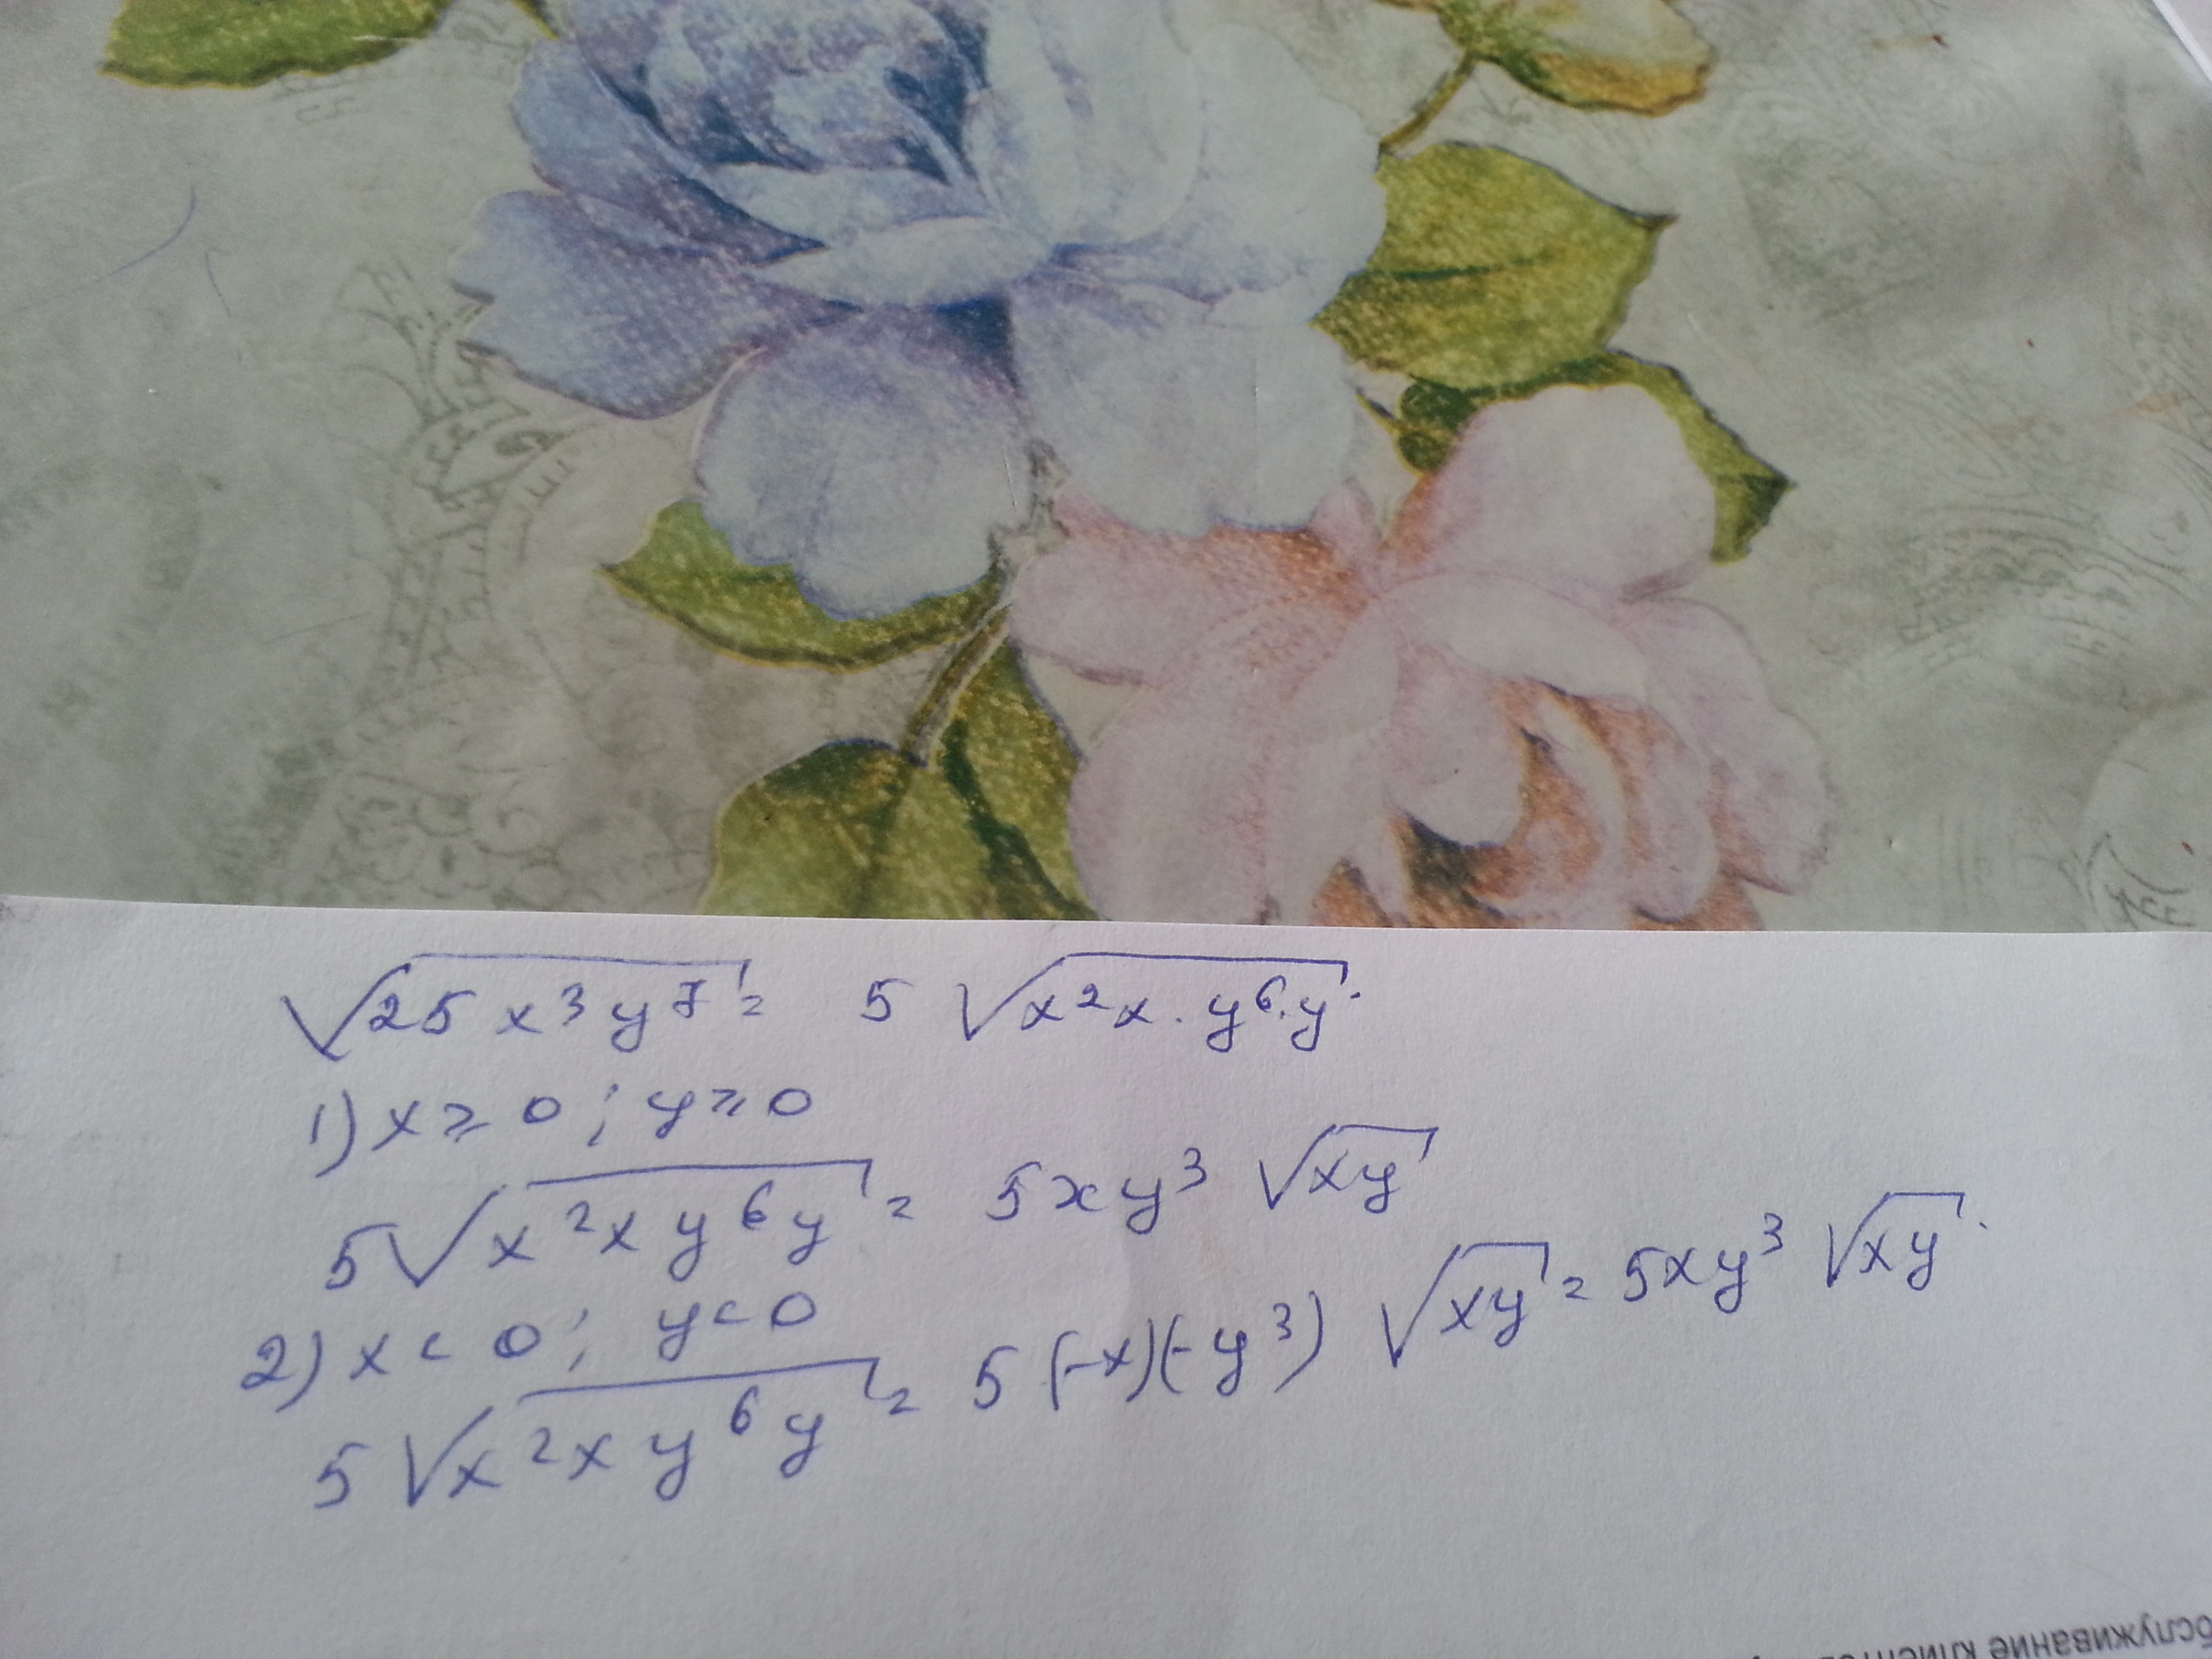 √25x³y⁷ = 5 √x²x·y⁶·y.
1) x ≥ 0; y ≥ 0
5√x²xy⁶y = 5xy³ √xy
2) x < 0; y < 0
5√x²xy⁶y = 5(-x)(-y³) √xy = 5xy³ √xy.
обслуживание клиентов